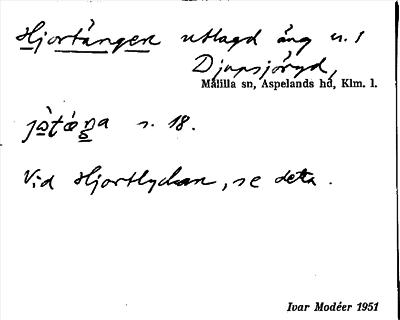 Hjortängen utlagd äng u. 1
Djupsjöryd,
Målilla sn, Aspelands hd, Klm. l.
s. 18.
Vid Hjortlyckan, se detta.
Ivar Modéer 1951